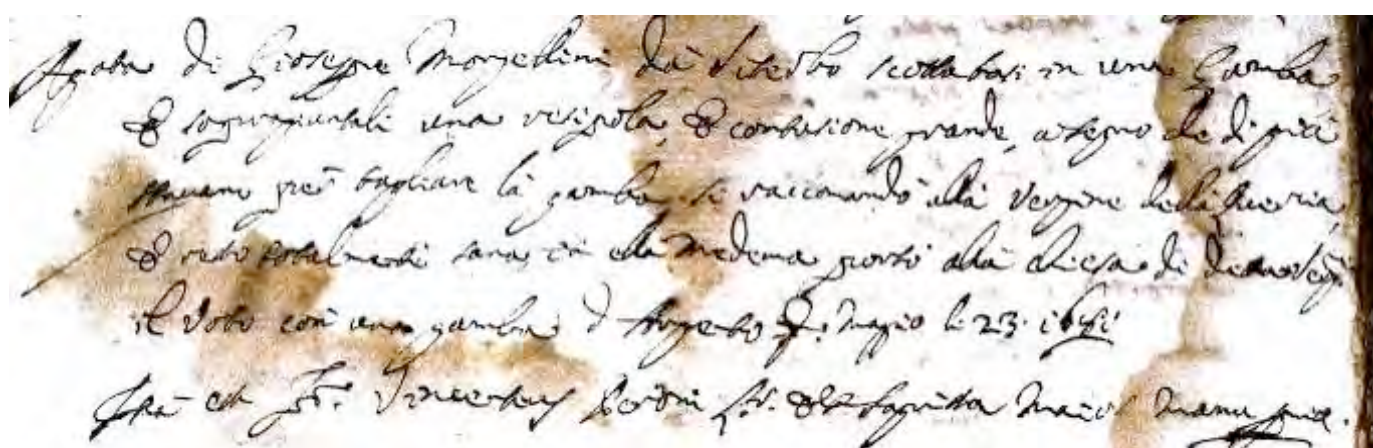 Agata di Gioseppe Monzellini da Viterbo scottatasi in una Gamba
et sogragiuntali una resipola, et contusione grande, a segno che di già
stavano per tagliare la gamba. si raccomandò alla Vergine della Quercia,
et restò totalmente sana, et ella medema portò alla chiesa di
il Voto con una gamba d Argento Maggio li 23
Ita est fr. Vincentius manu